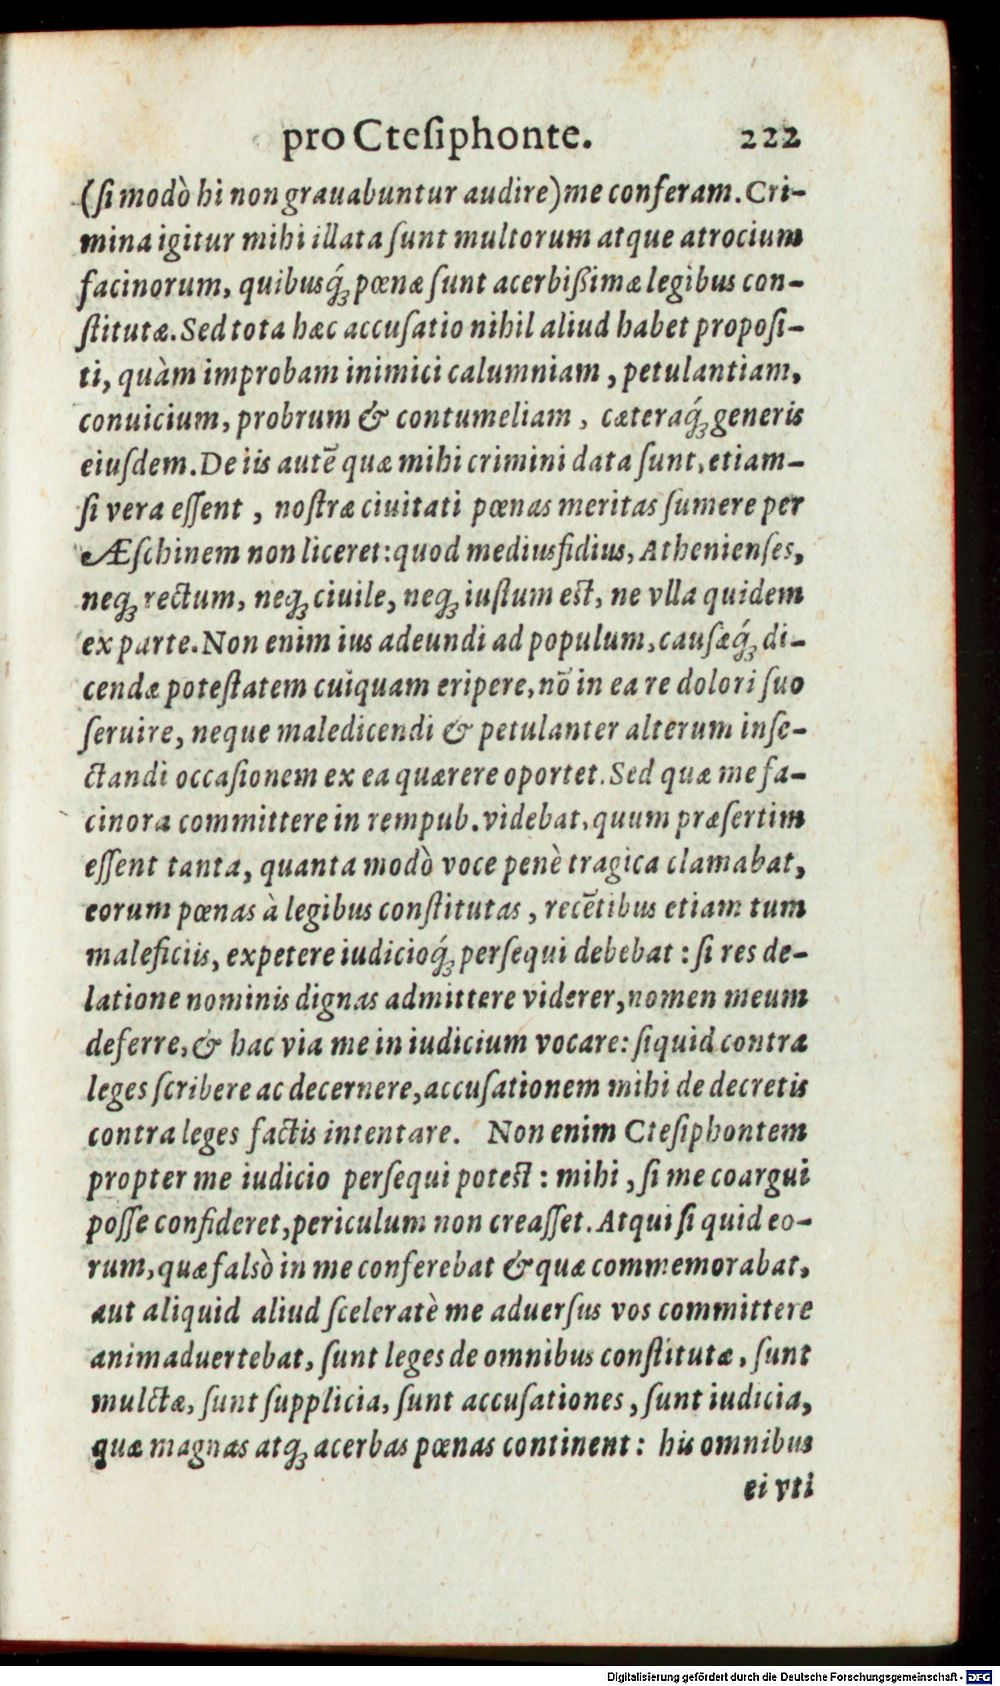 pro Cteſiphonte. 222
(ſi modò hi non grauabuntur audire) me conferam. Cri-
mina igitur mihi illata ſunt multorum atque atrocium
facinorum, quibusq́; pœnæ ſunt acerbißimæ legibus con-
ſtitutæ. Sed tota hæc accuſatio nihil aliud habet propoſi-
ti, quàm improbam inimici calumniam, petulantiam,
conuicium, probrum & contumeliam, cæteraq́; generis
eiuſdem. De iis autẽ quæ mihi crimini data ſunt, etiam-
ſi vera eſſent, noſtræ ciuitati pœnas meritas ſumere per
Æſchinem non liceret: quod mediusfidius, Athenienſes,
neq; rectum, neq; ciuile, neq; iuſtum eſt, ne vlla quidem
ex parte. Non enim ius adeundi ad populum, cauſæq́; di-
cendæ poteſtatem cuiquam eripere, nõ in ea re dolori ſuo
ſeruire, neque maledicendi & petulanter alterum inſe-
ctandi occaſionem ex ea quærere oportet. Sed quæ me fa-
cinora committere in rempub. videbat, quum præſertim
eſſent tanta, quanta modò voce penè tragica clamabat,
eorum pœnas à legibus conſtitutas, recẽtibus etiam tum
maleficiis, expetere iudicioq́; perſequi debebat: ſi res de-
latione nominis dignas admittere viderer, nomen meum
deferre, & hac via me in iudicium vocare: ſiquid contra
leges ſcribere ac decernere, accuſationem mihi de decretis
contra leges factis intentare. Non enim Cteſiphontem
propter me iudicio perſequi poteſt: mihi, ſi me coargui
poſſe confideret, periculum non creaſſet. Atqui ſi quid eo-
rum, quæ falsò in me conferebat & quæ commemorabat,
aut aliquid aliud ſceleratè me aduerſus vos committere
animaduertebat, ſunt leges de omnibus conſtitutæ, ſunt
mulctæ, ſunt ſupplicia, ſunt accuſationes, ſunt iudicia,
quæ magnas atq; acerbas pœnas continent: his omnibus
ei vti
Digitalisierung gefördert durch die Deutsche Forschungsgemeinschaft - DFG